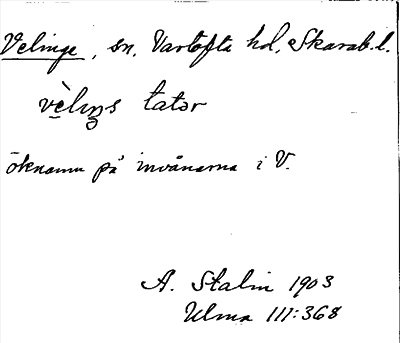 Velinge, sn, Vartofta hd, Skarab. l.
vèlıŋs tatər
öknamn på invånarna i V.
A. Stalin 1903
Ulma 111:368